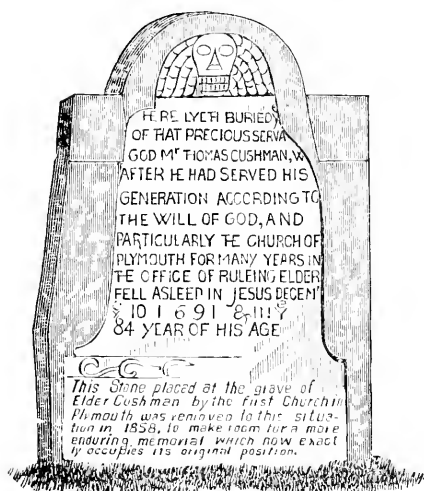 HERE LYETH BURIED
OF THAT PRECIOUS SERVA
GOD Mr THOMAS CUSHMAN, W
AFTER HE HAD SERVED HIS
GENERATION ACCORDING TO
THE WILL OF GOD, AND
PARTICULARLY THE CHURCH OF
PLYMOUTH FOR MANY YEARS IN
THE OFFICE OF RULEING ELDER
FELL ASLEEP IN JESUS DECEMr
10 1691 & IN Ye
84 YEAR OF HIS AGE
This Stone placed at the grave of
Elder Cushman by the first Church in
Plymouth was removed to this situa-
tion in 1858, to make room for a more
enduring memorial which now exact
ly occupies its original position.